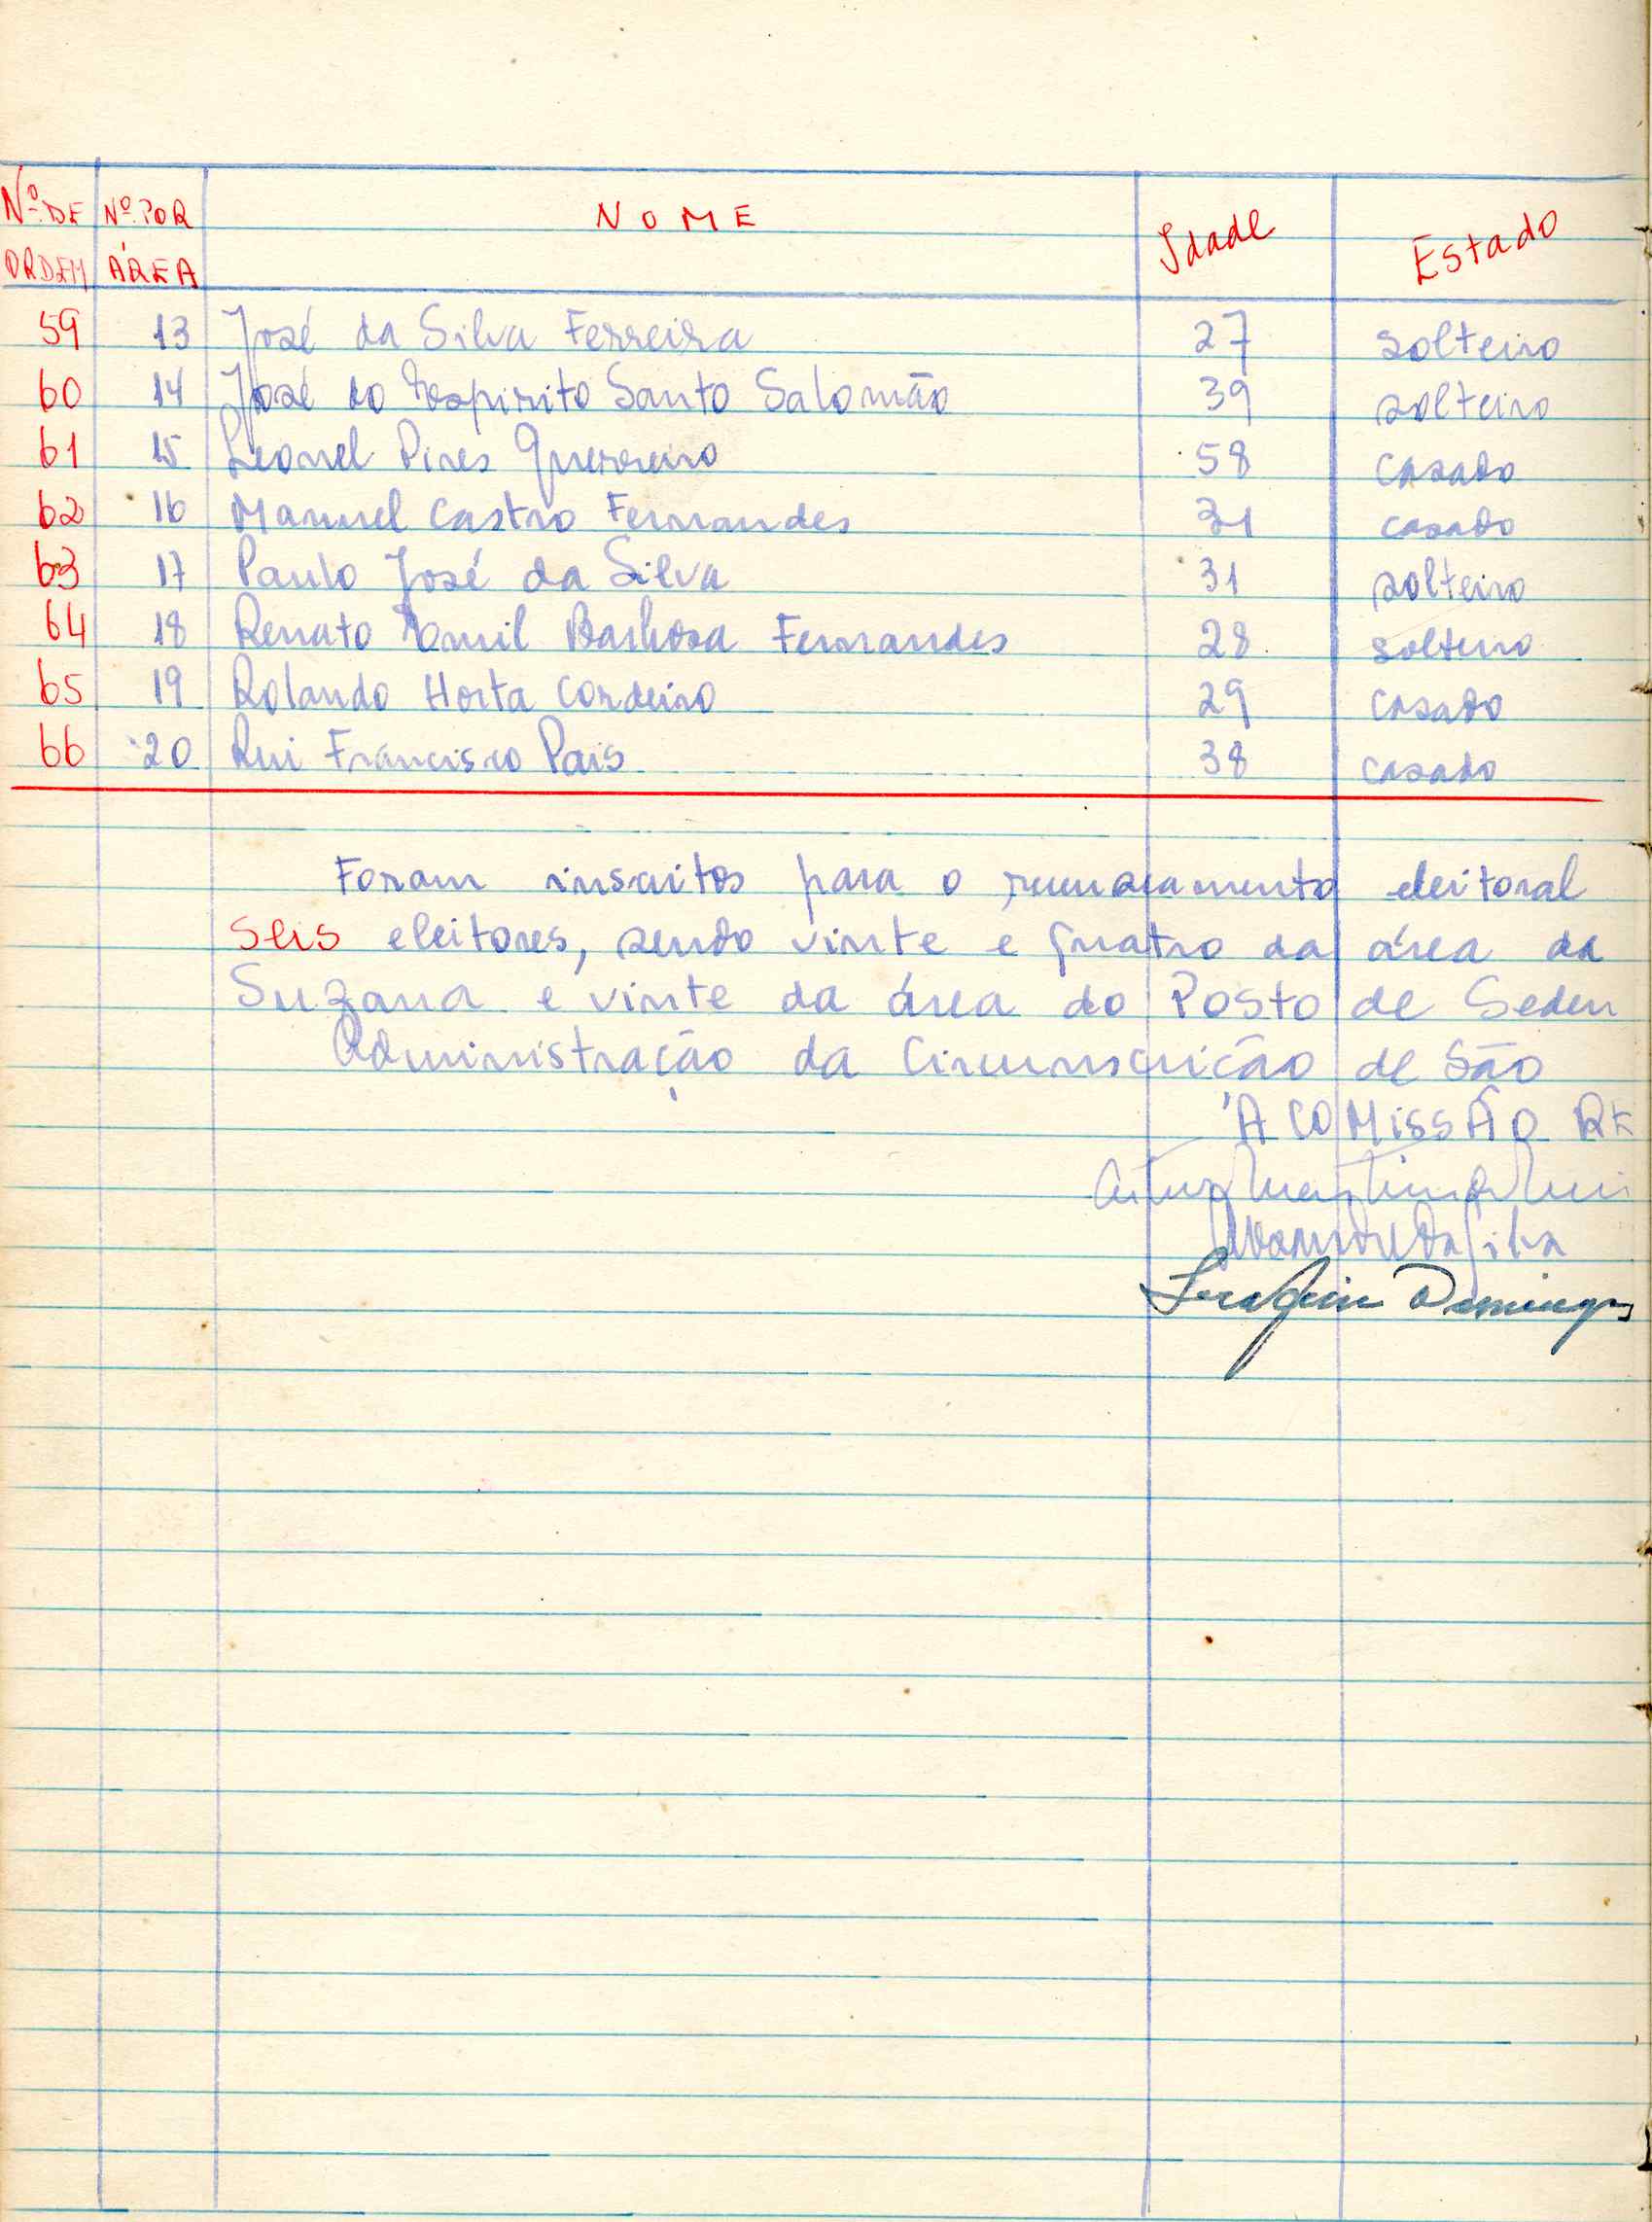 Nº DE Nº POR NOME Idade Estado
ORDEM ÁREA
59 13 José da Silva Ferreira 27 solteiro
60 14 José do Espirito Santo Salomão 39 solteiro
61 15 Leonel Pires Guerreiro 58 casado
62 16 Manuel Castro Fernandes 31 casado
63 17 Paulo José da Silva 31 solteiro
64 18 Renato Emil Barbosa Fernandes 28 solteiro
65 19 Rolando Horta Cordeiro 29 casado
66 20 Rui Francisco Pais 38 casado
Foram inscritos para o recenseamento eleitoral
seis eleitores, sendo vinte e quatro da área da
Suzana e vinte da área do Posto de Seden
Administração da Circunscrição de São
A COMISSÃO RE
da Silva
Serafim Domingos